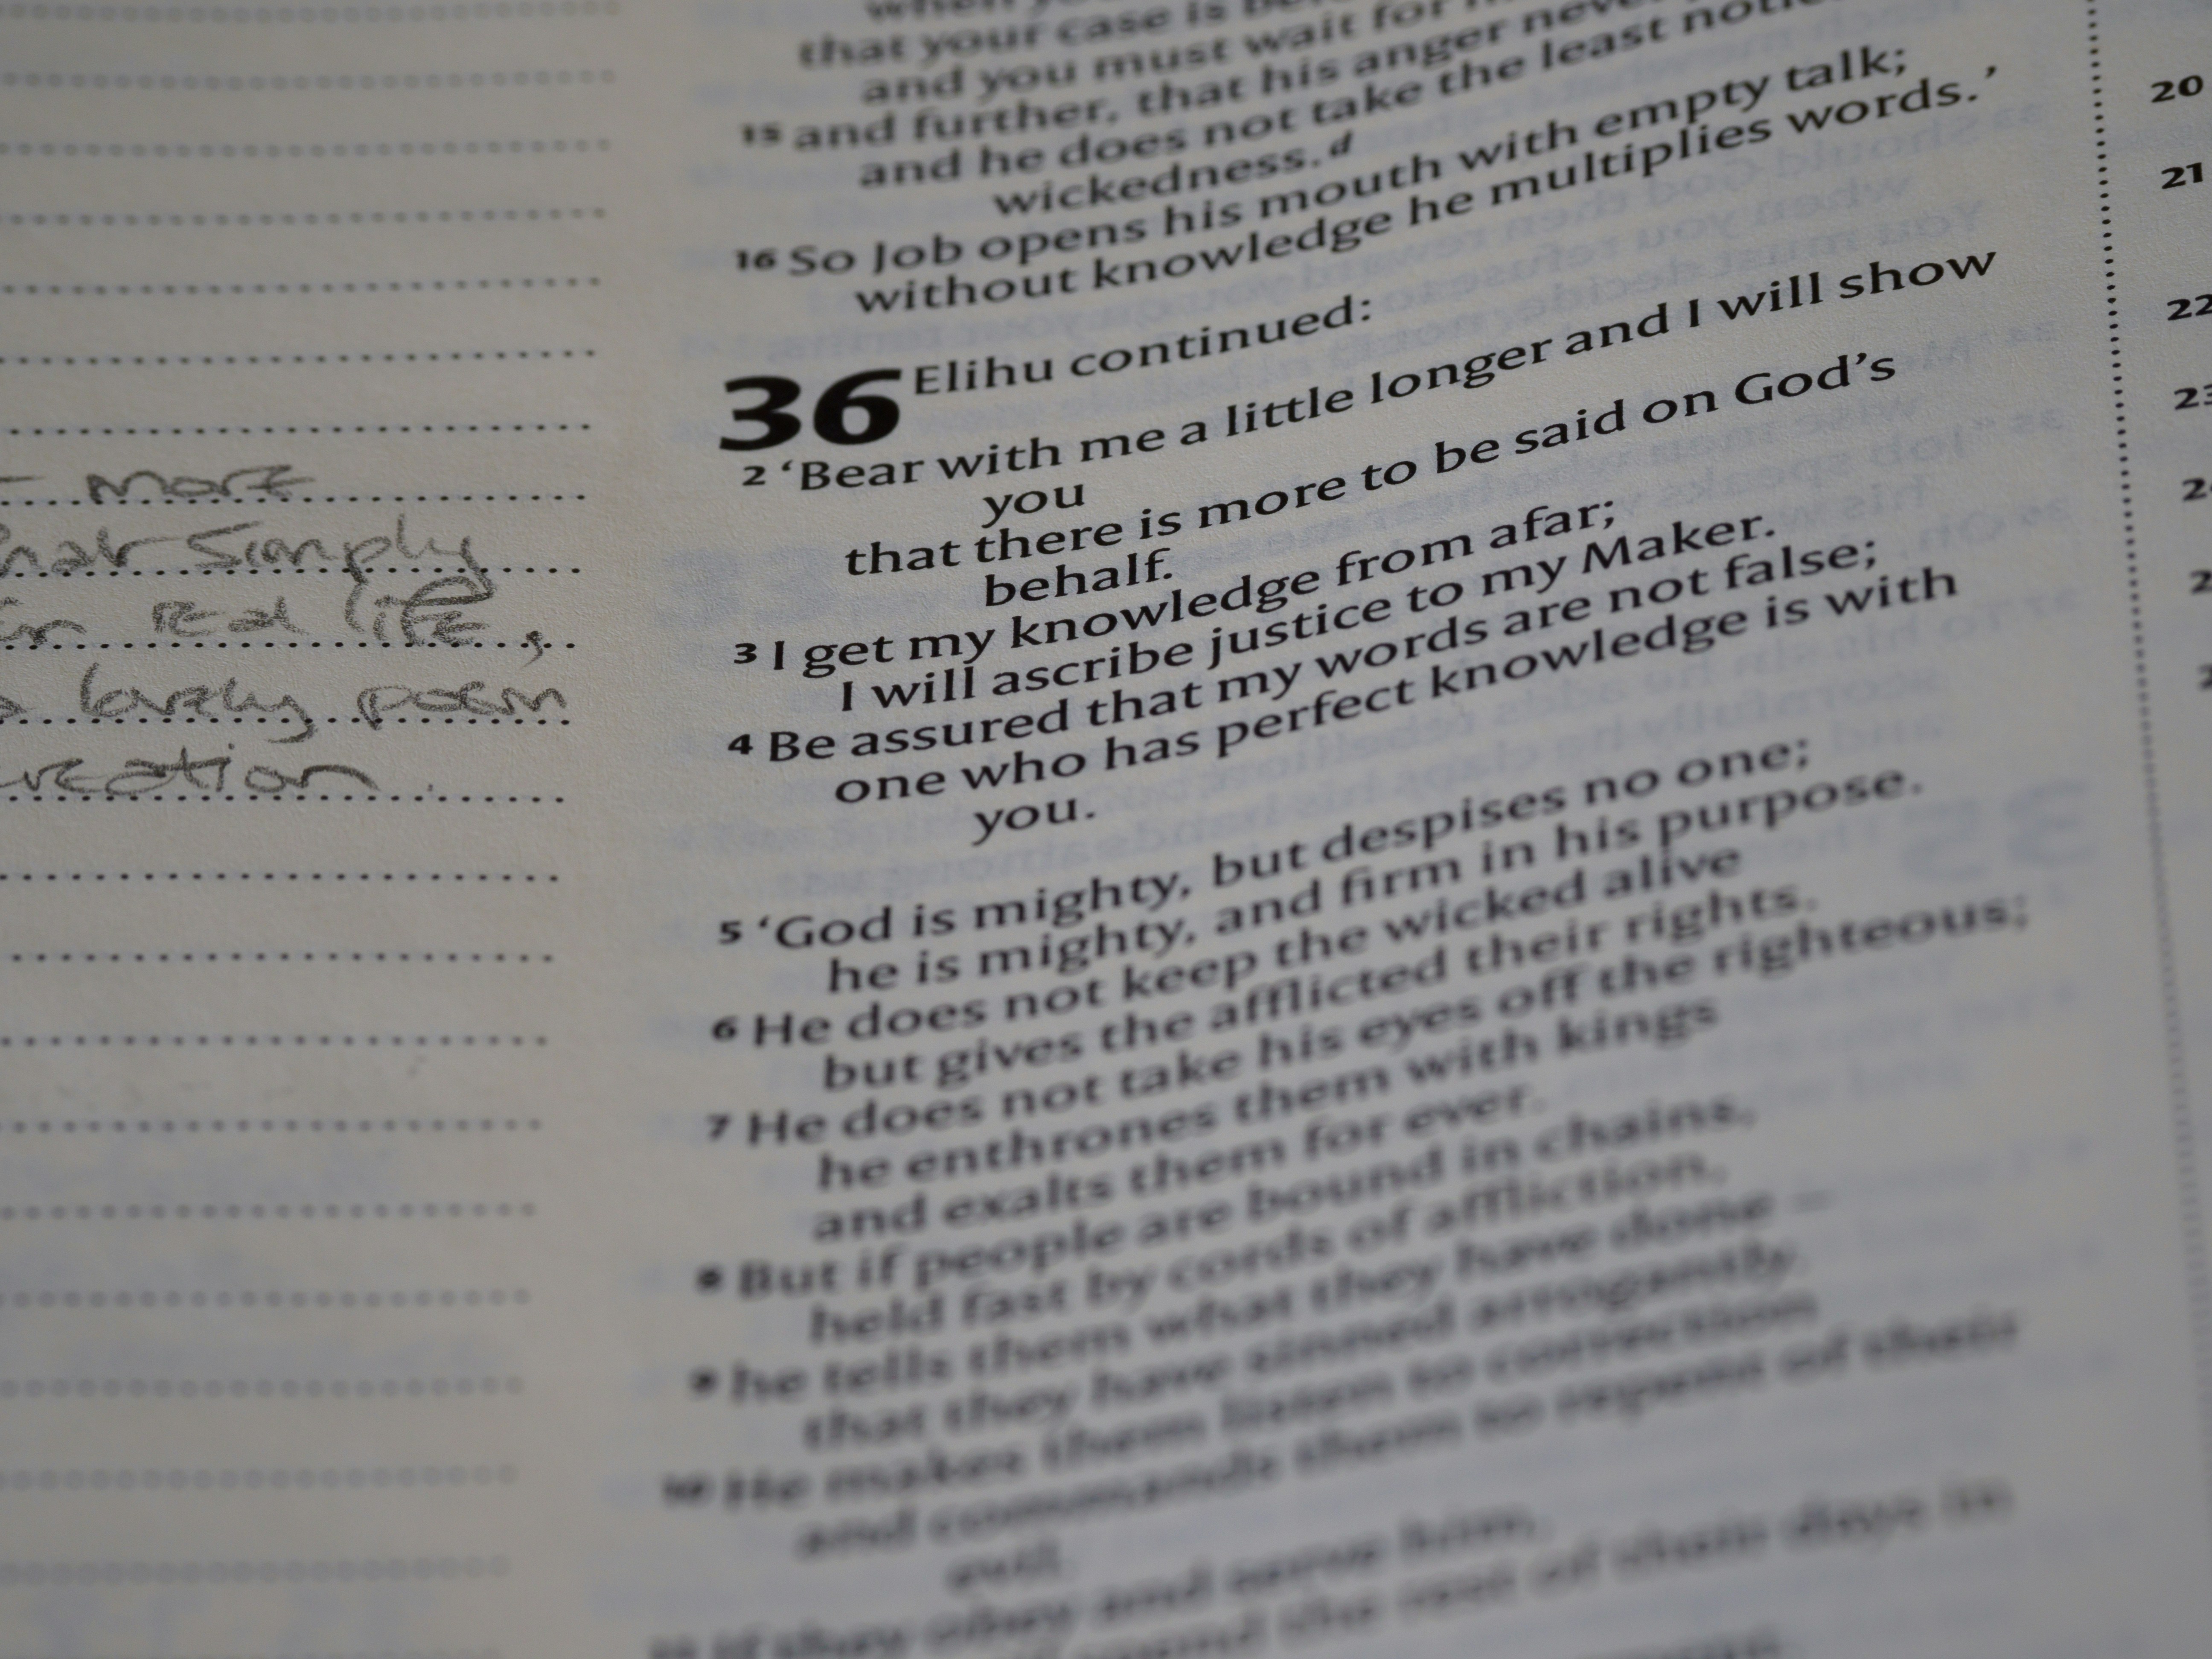 more
simply
real life,
lovely poem
that your case is
and you must wait for
15 and further, that his anger never
and he does not take the least
wickedness.d
16 So Job opens his mouth with empty talk;
without knowledge he multiplies words.’
36 Elihu continued:
2 ‘Bear with me a little longer and I will show
you
that there is more to be said on God’s
behalf.
3 I get my knowledge from afar;
I will ascribe justice to my Maker.
4 Be assured that my words are not false;
one who has perfect knowledge is with
you.
5 ‘God is mighty, but despises no one;
he is mighty, and firm in his purpose.
6 He does not keep the wicked alive
but gives the afflicted their rights.
7 He does not take his eyes off the righteous;
he enthrones them with kings
and exalts them for ever.
8 But if people are bound in chains,
held fast by cords of affliction,
9 he tells them what they have done –
that they have sinned arrogantly.
10 He makes them listen to correction
and commands them to repent of their
evil.
11 If they obey and serve him,
the rest of their days in
20
21
22
23